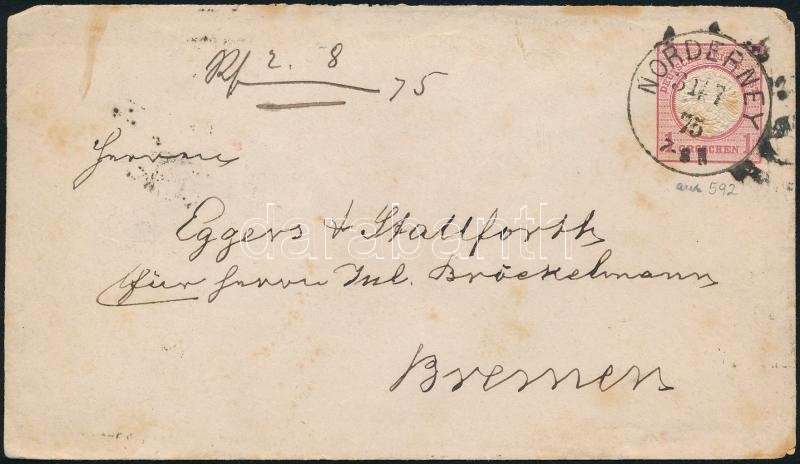 2. 8
75
NORDERNEY
31/7
75
7-8 N
1 GROSCHEN 1
aus 592
Herren
Eggers & Stallforth
für Herrn Jul. Bröckelmann
Bremen
darabanth